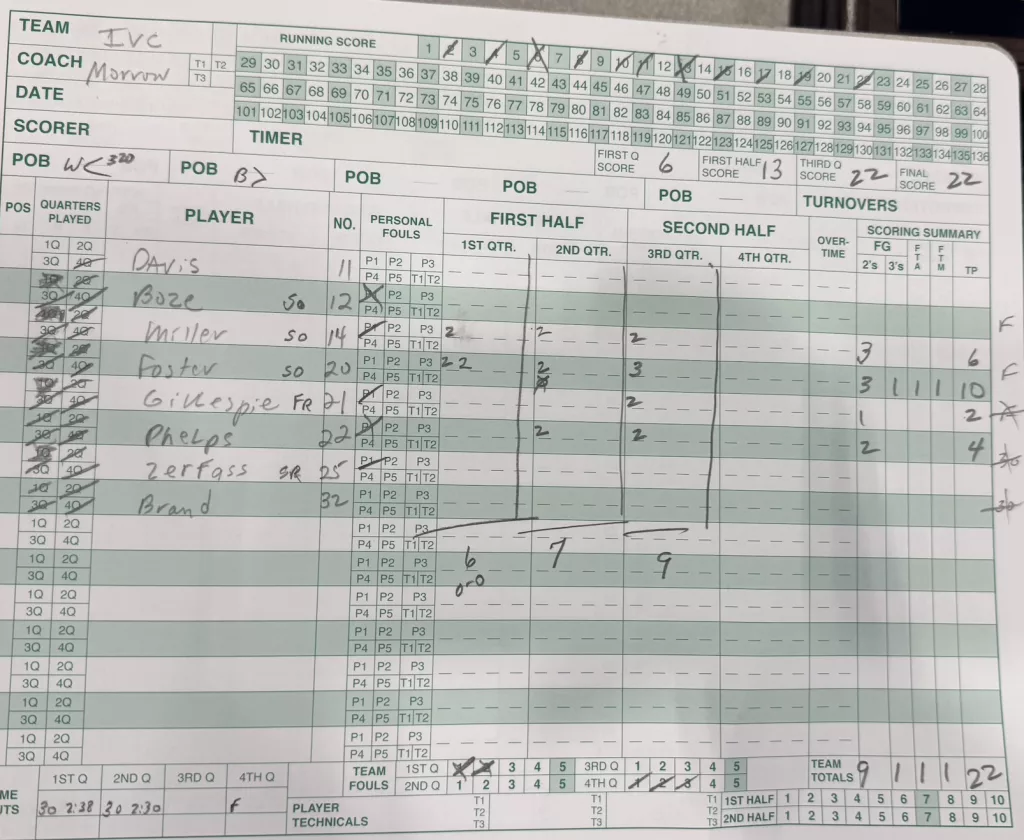 TEAM IVC
COACH Morrow T1 T2 T3
DATE
SCORER
RUNNING SCORE 1 2 3 4 5 6 7 8 9 10 11 12 13 14 15 16 17 18 19 20 21 22 23 24 25 26 27 28
29 30 31 32 33 34 35 36 37 38 39 40 41 42 43 44 45 46 47 48 49 50 51 52 53 54 55 56 57 58 59 60 61 62 63 64
65 66 67 68 69 70 71 72 73 74 75 76 77 78 79 80 81 82 83 84 85 86 87 88 89 90 91 92 93 94 95 96 97 98 99 100
101 102 103 104 105 106 107 108 109 110 111 112 113 114 115 116 117 118 119 120 121 122 123 124 125 126 127 128 129 130 131 132 133 134 135 136
TIMER
FIRST Q SCORE 6 FIRST HALF SCORE 13 THIRD Q SCORE 22 FINAL SCORE 22
POB W< 320 POB B> POB POB POB TURNOVERS
POS QUARTERS PLAYED PLAYER NO. PERSONAL FOULS FIRST HALF SECOND HALF OVER-TIME SCORING SUMMARY
1ST QTR. 2ND QTR. 3RD QTR. 4TH QTR. FG 2's 3's FTA FTM TP
1Q 2Q
3Q 4Q DAvis 11 P1 P2 P3
P4 P5 T1 T2
1Q 2Q
3Q 4Q Boze So 12 P1 P2 P3
P4 P5 T1 T2
1Q 2Q
3Q 4Q Miller So 14 P1 P2 P3 2 2 2 3 6 F
P4 P5 T1 T2
1Q 2Q
3Q 4Q Foster So 20 P1 P2 P3 2 2 2 3 3 1 1 1 10 F
P4 P5 T1 T2
1Q 2Q
3Q 4Q Gillespie FR 21 P1 P2 P3 2 1 2
P4 P5 T1 T2
1Q 2Q
3Q 4Q Phelps 22 P1 P2 P3 2 2 2 4
P4 P5 T1 T2 30
1Q 2Q
3Q 4Q Zerfass SR 25 P1 P2 P3
P4 P5 T1 T2
1Q 2Q
3Q 4Q Brand 32 P1 P2 P3 30
P4 P5 T1 T2
1Q 2Q P1 P2 P3
3Q 4Q P4 P5 T1 T2 6 7 9
1Q 2Q P1 P2 P3
3Q 4Q P4 P5 T1 T2 0-0
1Q 2Q P1 P2 P3
3Q 4Q P4 P5 T1 T2
1Q 2Q P1 P2 P3
3Q 4Q P4 P5 T1 T2
1Q 2Q P1 P2 P3
3Q 4Q P4 P5 T1 T2
1Q 2Q P1 P2 P3
3Q 4Q P4 P5 T1 T2
1Q 2Q P1 P2 P3
3Q 4Q P4 P5 T1 T2
ME UTS 1ST Q 2ND Q 3RD Q 4TH Q
30 2:38 30 2:30 F
TEAM FOULS 1ST Q 1 2 3 4 5 3RD Q 1 2 3 4 5
2ND Q 1 2 3 4 5 4TH Q 1 2 3 4 5
TEAM TOTALS 9 1 1 1 22
PLAYER TECHNICALS T1 T2 T3 T1 T2 T3 T1 T2 T3
1ST HALF 1 2 3 4 5 6 7 8 9 10
2ND HALF 1 2 3 4 5 6 7 8 9 10